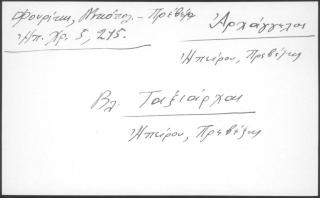 Φουρίκη, Νικόπολ. - Πρέβεζα
Ἠπ. Χρ. 5, 215.
Ἀρχάγγελοι
Ἠπείρου, Πρεβέζης
Βλ. Ταξιάρχαι
Ἠπείρου, Πρεβέζης